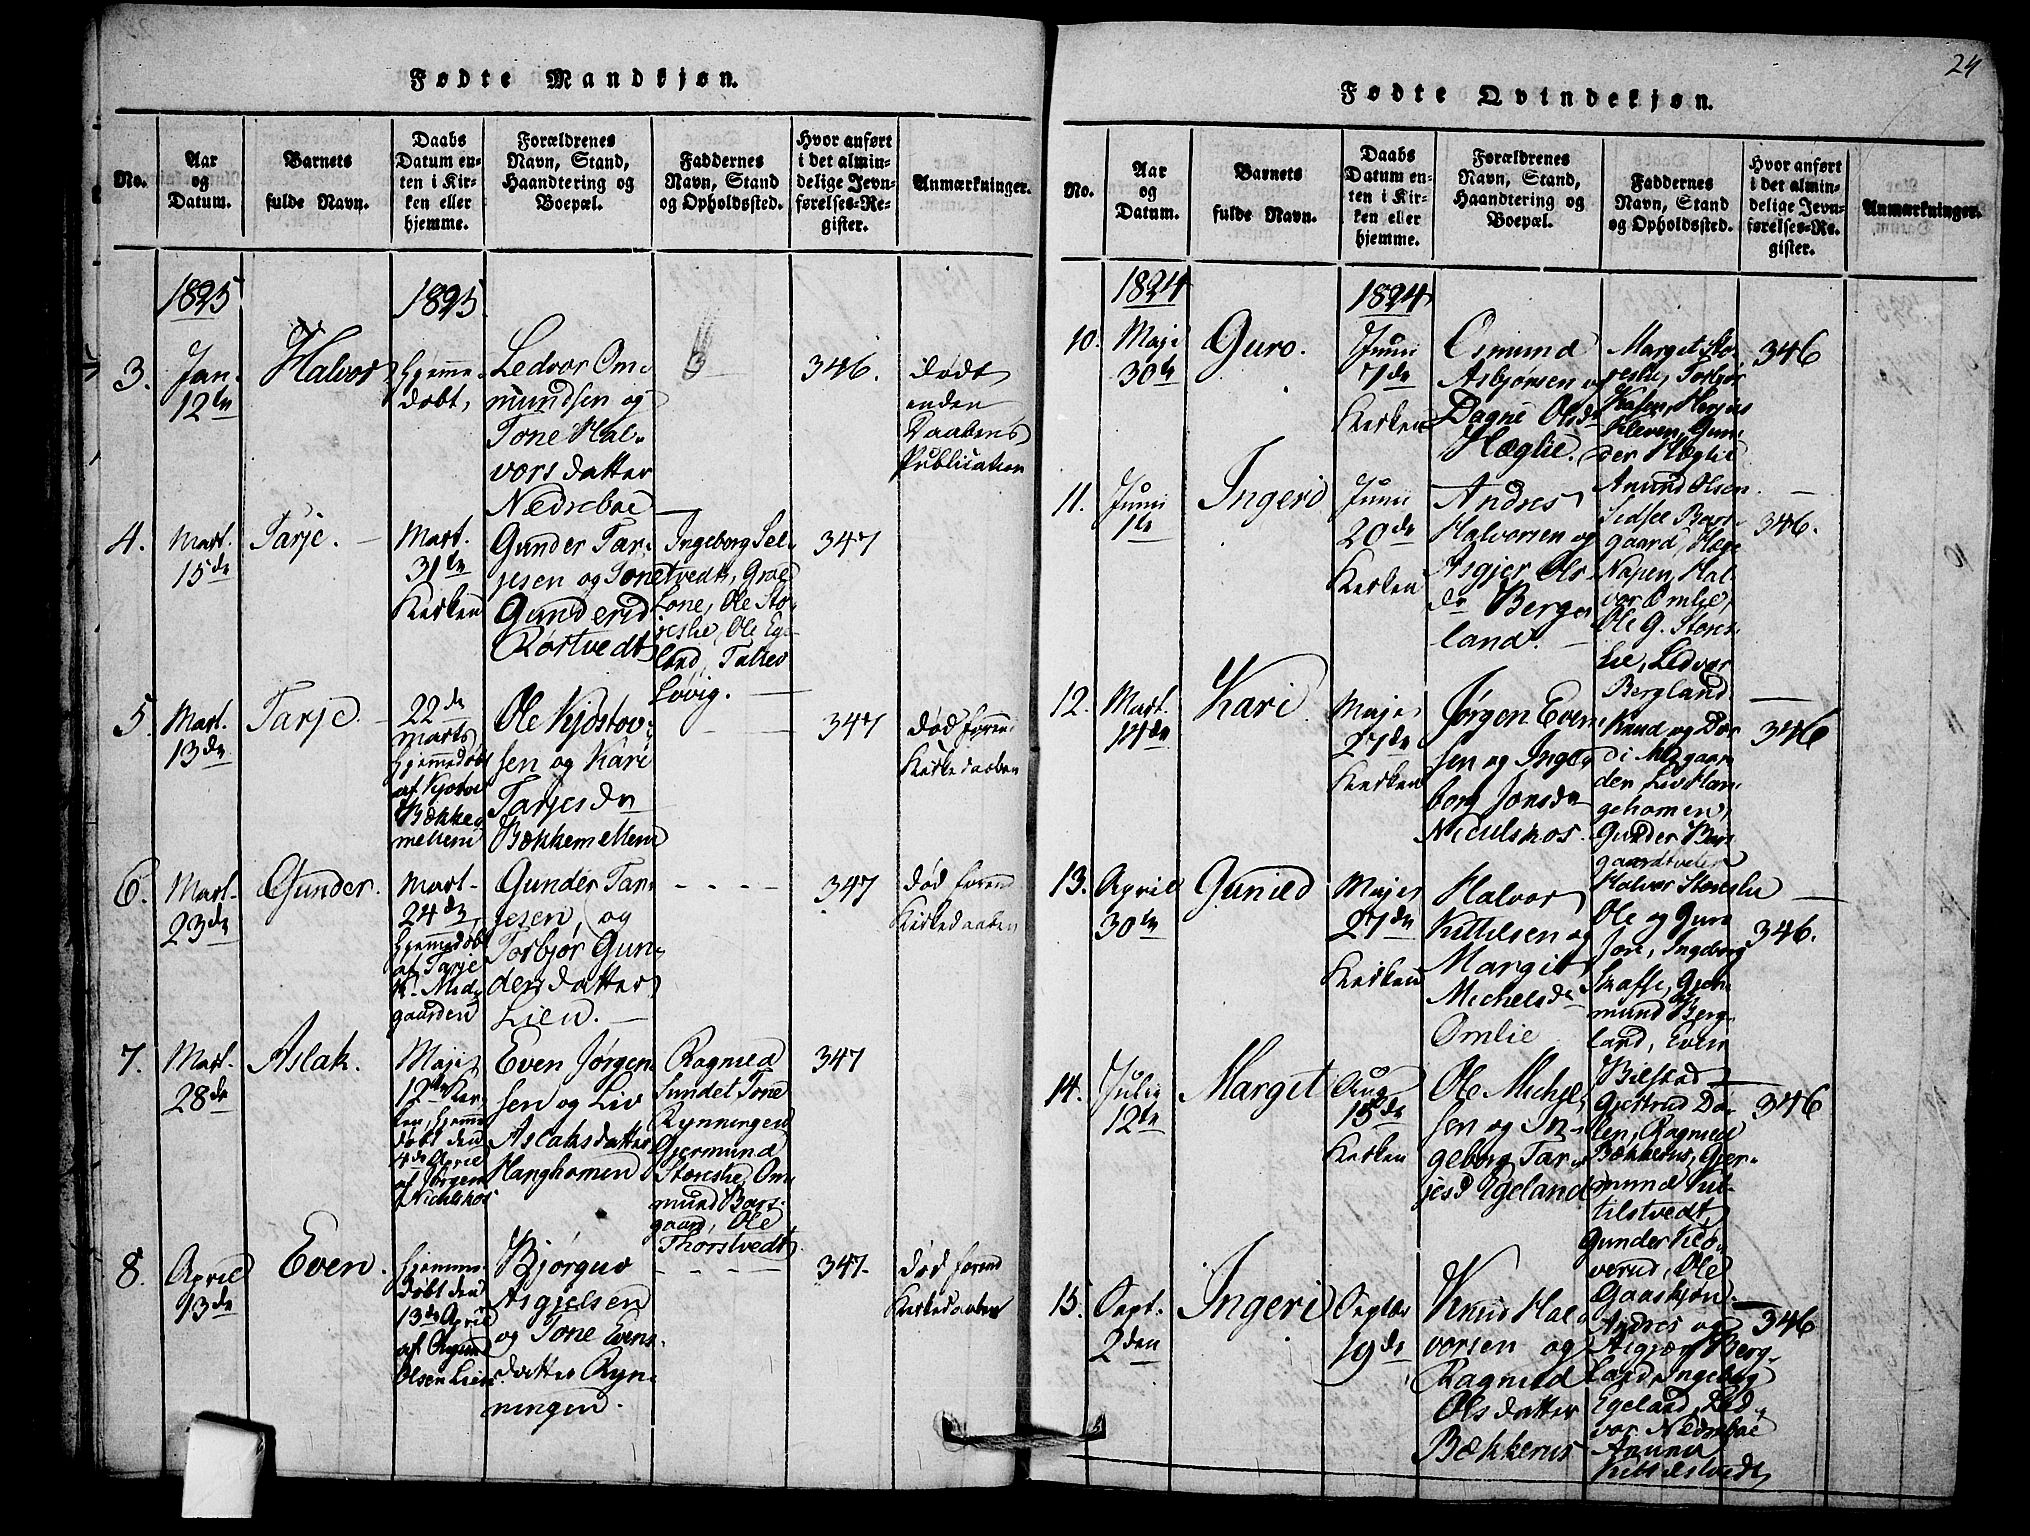 Fødte Mandkjøn.
No.
Aar
og
Datum.
Barnets
fulde Navn.
Daabs
Datum en-
ten i Kir-
ken eller
hjemme.
Forældrenes
Navn, Stand,
Haandtering og
Boepæl.
Faddernes
Navn, Stand
og Opholdssted.
Hvor anført
i det almin-
delige Jevn-
førelses-Re-
gister.
Anmærkninger.
1825
1825
3.
Jan.
12te
Halvor
hjemme-
døbt,
Ledvor Om-
mundsen og
Tone Hal-
vors datter
Nedreboe
346.
død
enden
Daabens
Publication
4.
Mart.
15de
Tarje.
Mart.
31te
Kirken
Gunder Tar-
jesen og Tone
Gunderid
Røstvedt
Ingeborg Sel-
tvedt, Groe
Lone, Ole Sto-
reslie, Ole Ege-
land, Tallev
Løvig.
347
5.
Mart.
13de
Tarje
22de
marts
hjemmedøbt
af Kjøstov
Bække-
mellem
Ole Kjøstov-
sen og Kari
Tarjesdr
Bækkemellem
347
død foren
Kirkedaaben
6.
Mart.
23de
Gunder.
Mart.
24de
hjemmedøbt
af Tarje
K. Mid-
gaarden
Gunder Tar-
jesen og
Torbjør Gun-
dersdatter
Lien.
347
død forend
Kirkedaaben
7.
Mart.
28de
Aslak.
Maji
12te Kir-
ken, hjemme
døbt den
4de April
af Jørgen
Nichelshos
Even Jørgen-
sen og Liv
Aslaksdatter
Hanghomen
Ragnild
Sundet Tone
Rynningen
Gjermund
Storeslie, Om-
mund Bars-
gaard, Ole
Thorstvedt
347
8.
April
13de
Even.
hjemme-
døbt den
13de April
af
Olsen Lien
Bjørguv
Asgjelsen
og Tone Evens-
datter Ryn-
ningen.
347.
død forend
Kirkedaaben
24
Fødte Qvindekjøn.
No.
Aar
og
Datum.
Barnets
fulde Navn.
Daabs
Datum en-
ten i Kir-
ken eller
hjemme.
Forældrenes
Navn, Stand,
Haandtering og
Boepæl.
Faddernes
Navn, Stand
og Opholdssted.
Hvor anført
i det almin-
delige Jevn-
førelses-Re-
gister.
Anmærkninger.
1824
1824
10.
Maji
30te
Guro.
Juni
7de
Kirken
Osmund
Asbjørsen og
Dagne Olsdr
Hæglie.
Marget Sto-
reslie, Torbjør
Kasen,
Kleven, Gun-
der Hæglie
346
11.
Juni
1te
Ingerid
Juni
20de
Kirken
Andres
Halvorsen og
Asgjer Ols-
dr Berge-
land.
Amund Olsen
Sidsel Bars-
gaard,
Napen, Hal-
vor Omlie,
Ole G. Stores-
lie, Ledvor
Bergland
346.
12.
Mart.
14de
Kari
Maji
27de
Kirken
Jørgen Even-
sen og Inge-
borg Jonsdr
Nichelshos.
Knud og Dor-
di Midgaar-
den Liv Han-
gehomen,
Gunder Bars-
gaardtveter
346
13.
April
30te
Gunild
Majes
27de
Kirken
Halvor
Kittilsen og
Margit
Michelsdr
Omlie
Halvor Storeslie
Ole og Guni
Jore, Ingeborg
Skaffe, Gjer-
mund Berg-
land, Even
Bilstad
346.
14.
Julii
12te
Marget
Aug
15de
Kirken
Ole Michel-
sen og In-
geborg Tar-
jesd Egeland
Gjertrud Da-
len, Ragnild
Bækkerus, Gjer-
mund Kit-
tilstvedt
Gunder Klo-
verud, Ole
Gaaskjøn
346
15.
Sept.
2den
Ingeri
Septbr
19de
Knud Hal-
vorsen og
Ragnild
Olsdatter
Bækkerus
Andres og
Asgjær Berg-
land, Ingeborg
Egeland, Led-
vor Nedreboe
Amund
Kittilstvedt
346